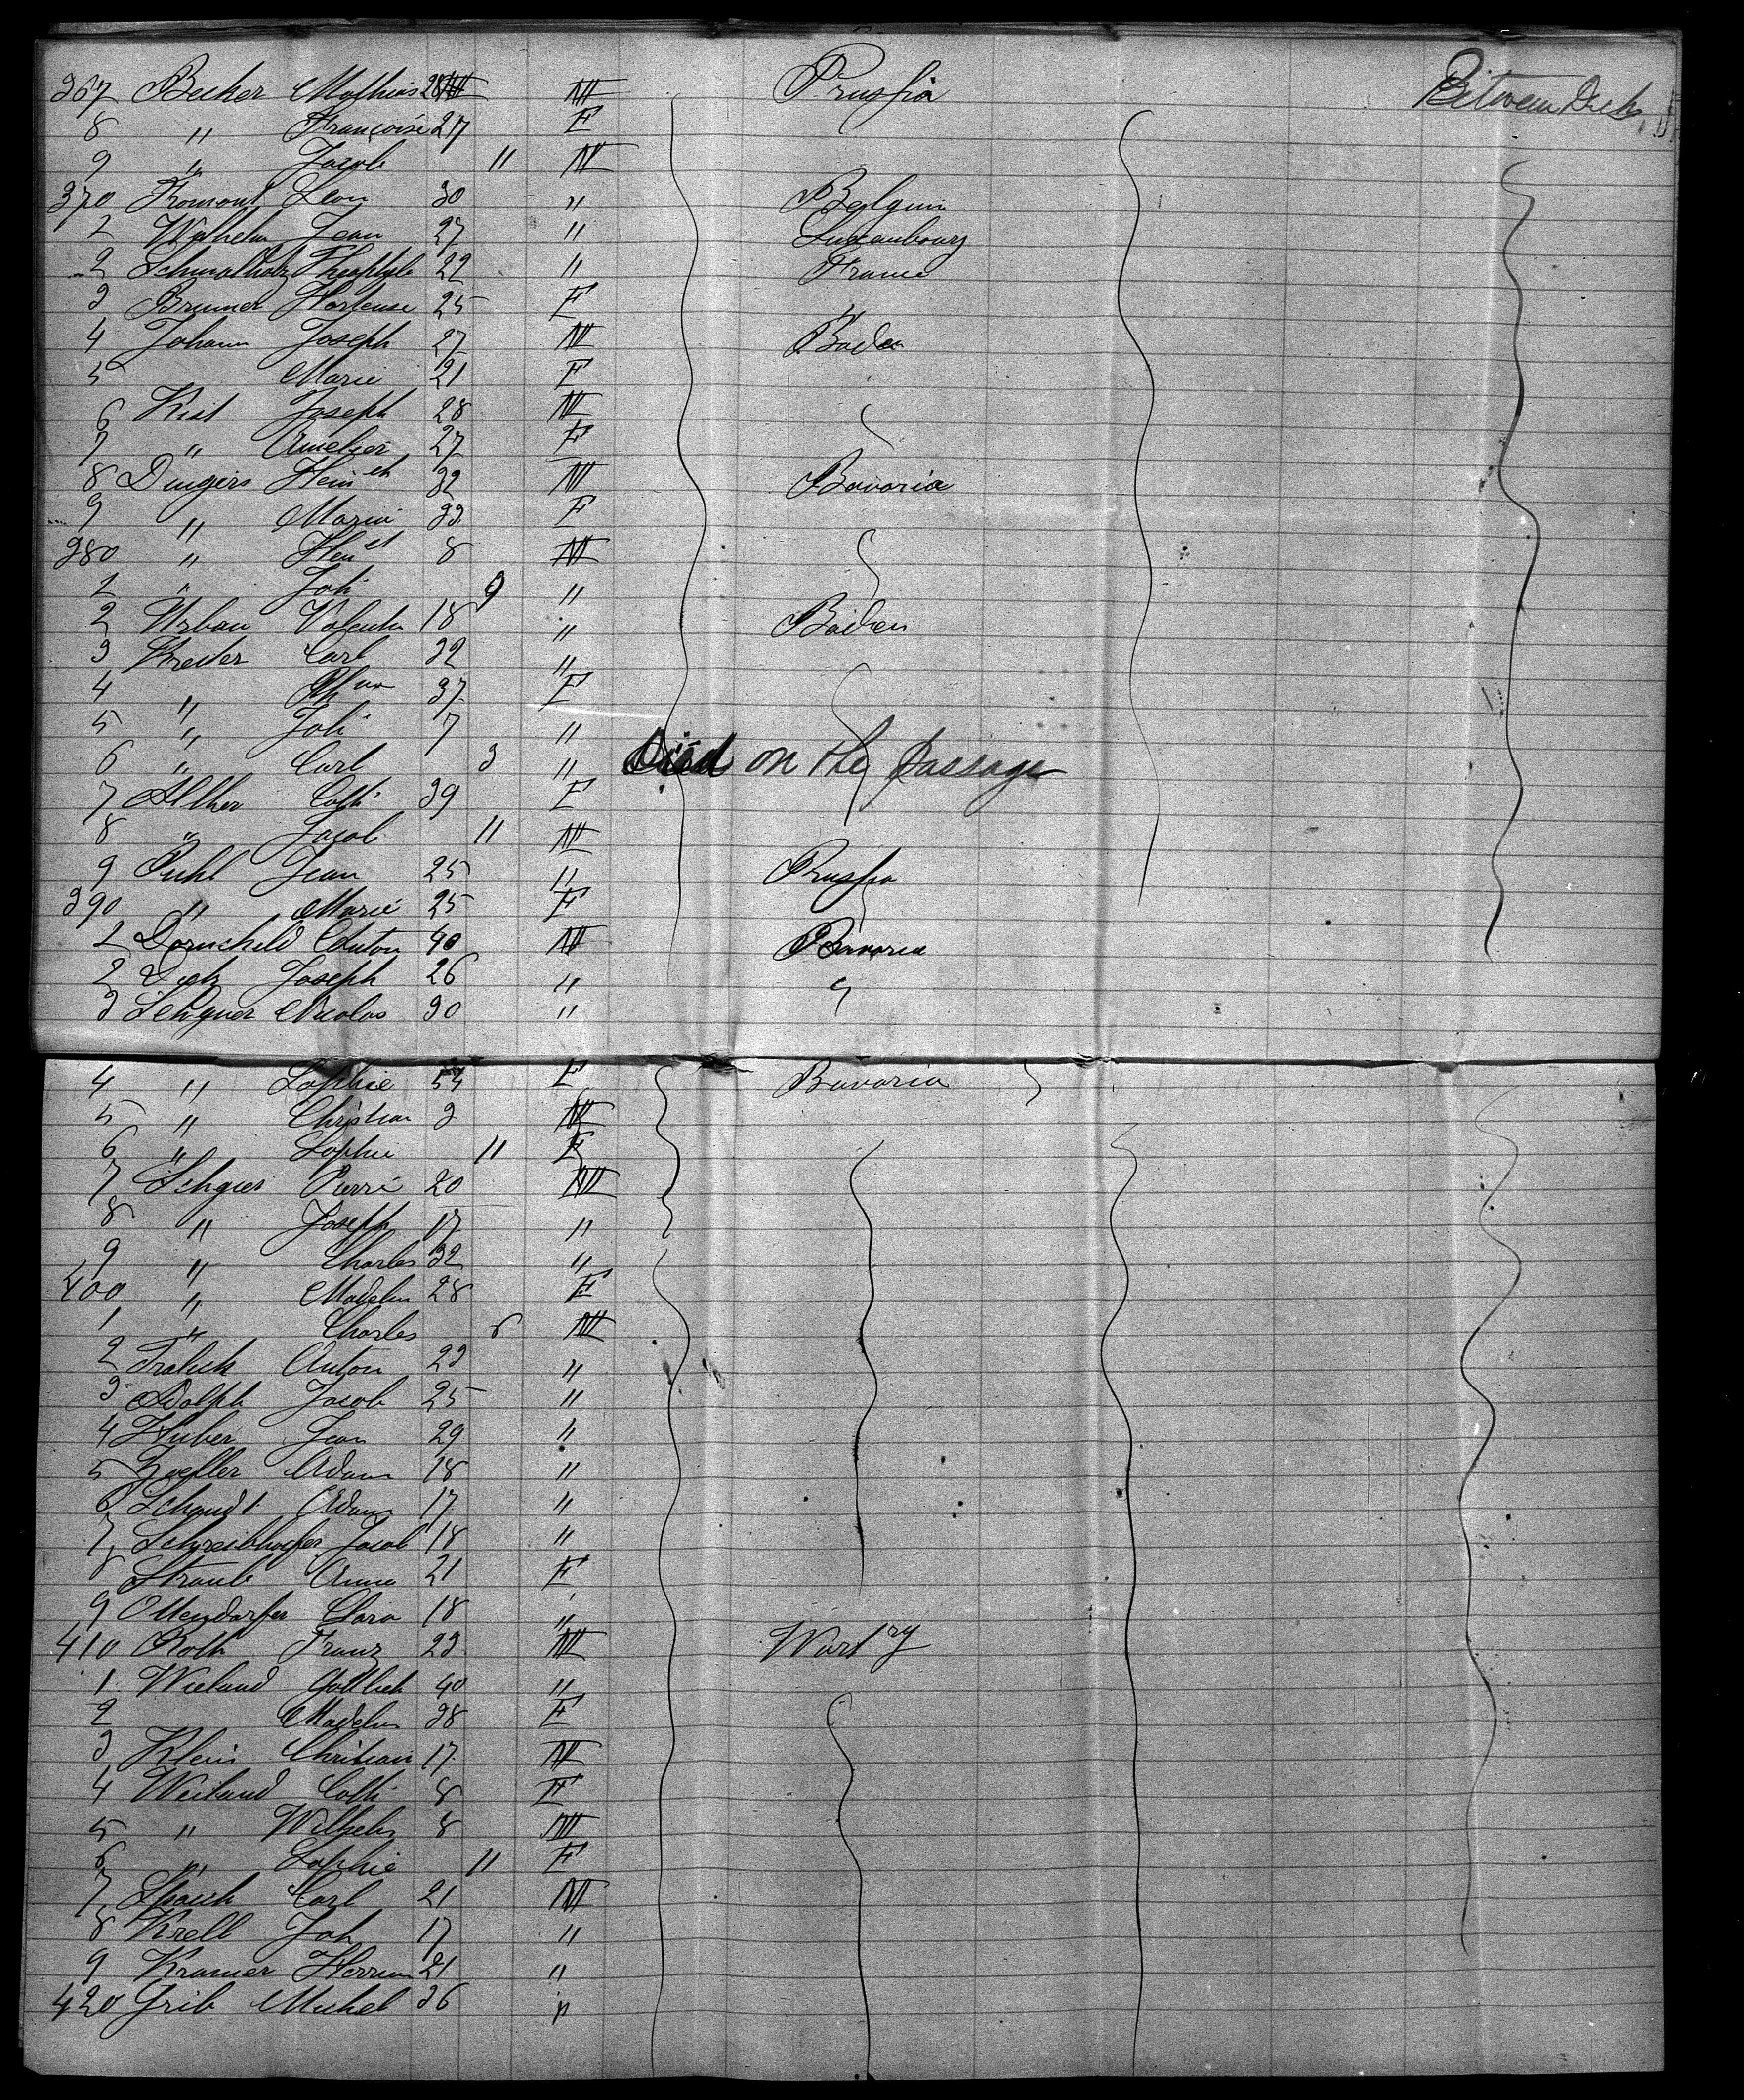 367 Becker Mathias 28 M Prussia Between Decks
8 " Françoise 27 F
9 " Jacob 11 M
370 Fromont Leon 30 " Belgium
2 Wilhelm Jean 27 " Luxembourg
2 Schmalholz Theophyle 22 " France
3 Brunner Hortense 25 F "
4 Johann Joseph 27 M Baden
5 Marie 21 F
6 Kist Joseph 28 M
7 " Amelier 27 F
8 Dingers Hein 32 M Bavaria
9 " Marie 33 F
380 " 8 M
2 " Joh 9 "
2 Urban Valentin 18 " Baden
3 Kreiter Carl 32 "
4 " 37 F
5 " Joh 7 "
6 " Carl 3 " Died on the passage
7 Cath 39 F
8 " Jacob 11 M
9 Puhl Jean 25 " Prussia
390 " Marie 25 F
2 Dornchild Anton 40 M Bavaria
2 Joseph 26 " "
3 Nicolas 30 "
4 " Sophie 54 F Bavaria
5 " Christian 3 M
6 " Sophie 11 F
7 Pierre 20 M
8 " Joseph 17 "
9 " Charles 32 "
400 " Madelin 28 F
1 " Charles 6 M
2 Anton 23 "
3 Adolph Jacob 25 "
4 Huber Jean 29 "
5 Adam 18 "
6 Adam 17 "
7 Schreibhoefer Jacob 18 "
8 Straub Anna 21 F
9 Ottendorfer Clara 18 "
410 Roth Franz 23 M
1 Wieland Gottlieb 40 "
2 Madelin 38 F
3 Klein Christian 17 M
4 Weiland Cath 8 F
5 " Wilhelm 8 M
6 " Sophie 11 F
7 Carl 21 M
8 Krell Joh 17 "
9 Kramer Herrm 21 "
420 Grib Michel 36 "